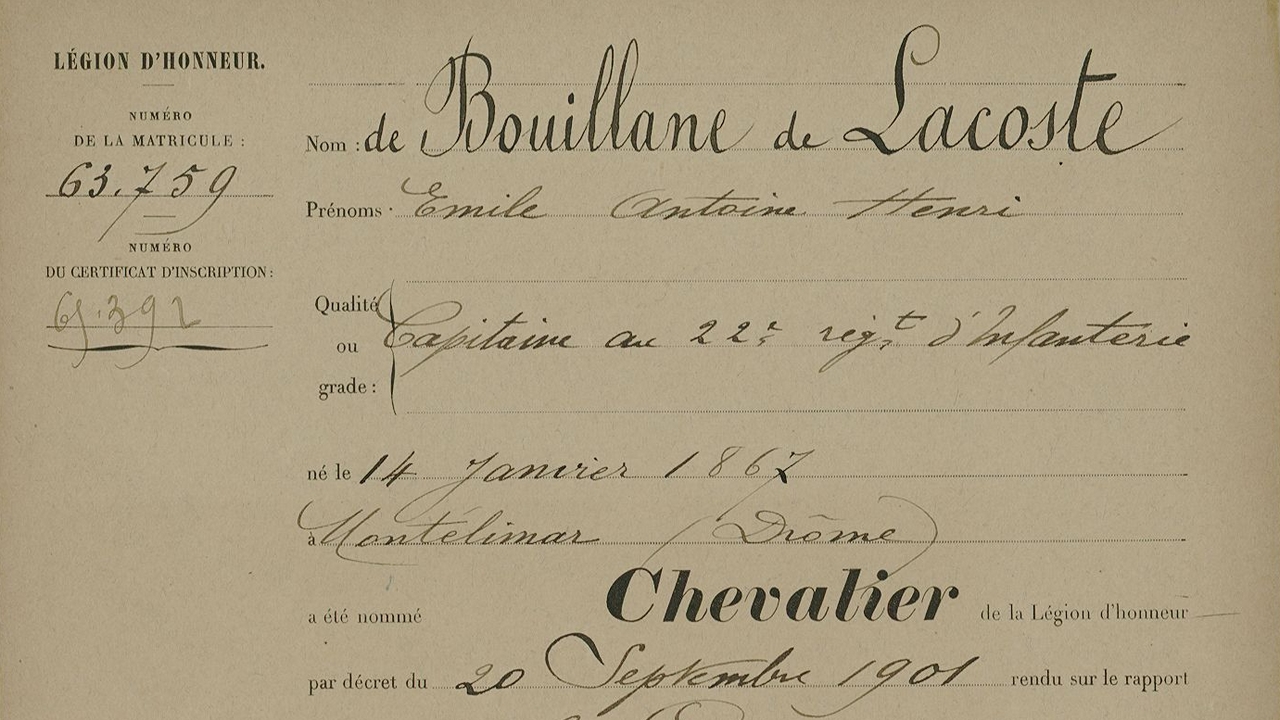 LÉGION D'HONNEUR.
NUMÉRO
DE LA MATRICULE :
63.759
NUMÉRO
DU CERTIFICAT D'INSCRIPTION :
Nom : de Bouillane de Lacoste
Prénoms : Emile Antoine Henri
Qualité
ou
grade :
Capitaine au 22e régt d'Infanterie
né le 14 Janvier 1867
à Montélimar (Drôme)
a été nommé Chevalier de la Légion d'honneur
par décret du 20 Septembre 1901 rendu sur le rapport